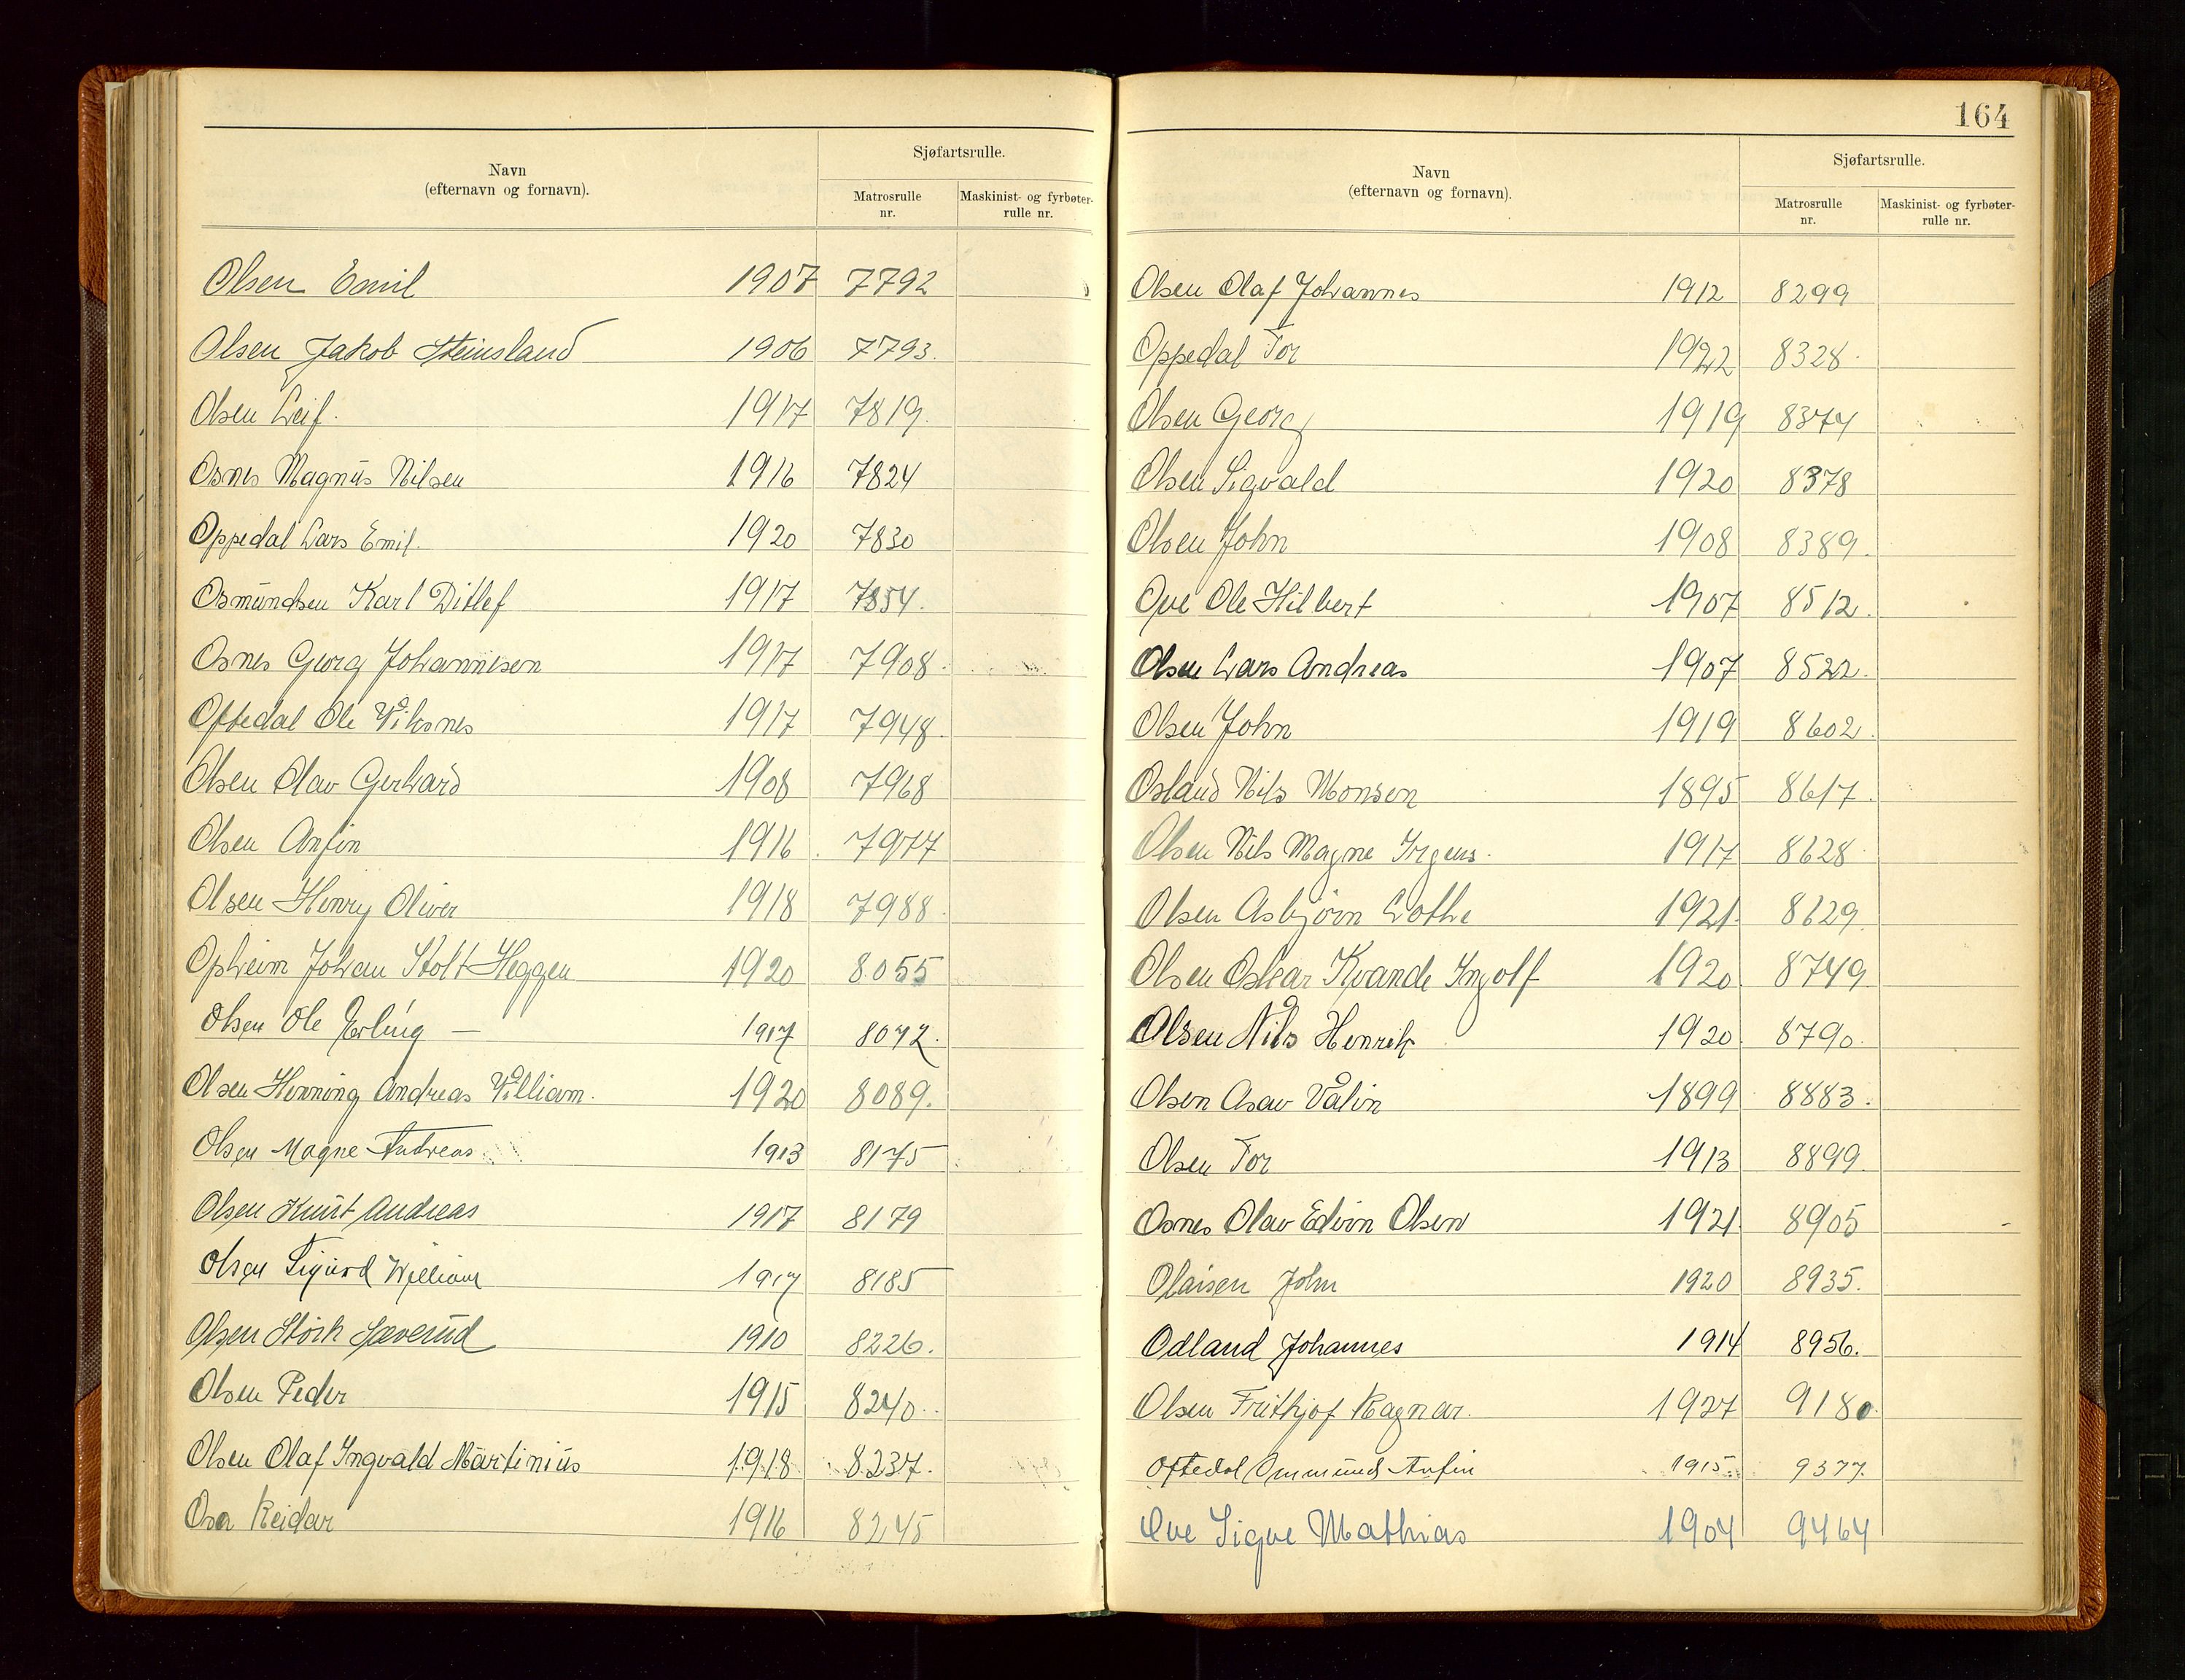 Navn
(efternavn og fornavn).
Sjøfartsrulle.
Matrosrulle nr.
Maskinist- og fyrbøter-rulle nr.
Olsen Emil 1907 7792
Olsen Jakob Steinsland 1906 7793.
Olsen Leif. 1917 7819.
Osnes Magnus Nilsen 1916 7824
Oppedal Lars Emil. 1920 7830
Osmundsen Karl Ditlef 1917 7854.
Osnes Georg Johannesen 1917 7908.
Oftedal Ole Viksnes 1917 7948.
Olsen Olav Gerhard 1908 7968
Olsen Anfin 1916 7977
Olsen Henry Oliver 1918 7988.
Opheim Johan Stolt Heggen 1920 8055
Olsen Ole Erling — 1917 8072.
Olsen Henning Andreas William. 1920 8089.
Olsen Magne Andreas 1913 8175
Olsen Knut Andreas 1917 8179
Olsen Sigurd William 1917 8185
Olsen Störk Sæverud 1910 8226.
Olsen Peder 1915 8240.
Olsen Olaf Ingvald Martinius 1918 8237.
Osa Reidar 1916 8245
164
Navn
(efternavn og fornavn).
Sjøfartsrulle.
Matrosrulle nr.
Maskinist- og fyrbøter-rulle nr.
Olsen Olaf Johannes 1912 8299
Oppedal Tor 1922 8328.
Olsen Georg 1919 8374
Olsen Sigvald 1920 8378
Olsen John 1908 8389.
Ove Ole Hilbert 1907 8512.
Olsen Lars Andreas 1907 8522.
Olsen John 1919 8602.
Osland Nils Monsen 1895 8617.
Olsen Nils Magne Irgens. 1917 8628
Olsen Asbjörn Lothe 1921 8629
Olsen Oskar Kvande Ingolf 1920 8749
Olsen Nils Henrik 1920 8790.
Olsen Asav Valin 1899 8883.
Olsen Tor 1913 8899
Osnes Olav Edvin Olsen 1921 8905
Olaisen John 1920 8935.
Odland Johannes 1914 8956.
Olsen Frithjof Ragnar. 1927 9180.
Oftedal Ommund Anfin 1915 9377.
Ove Sigve Mathias 1904 9464